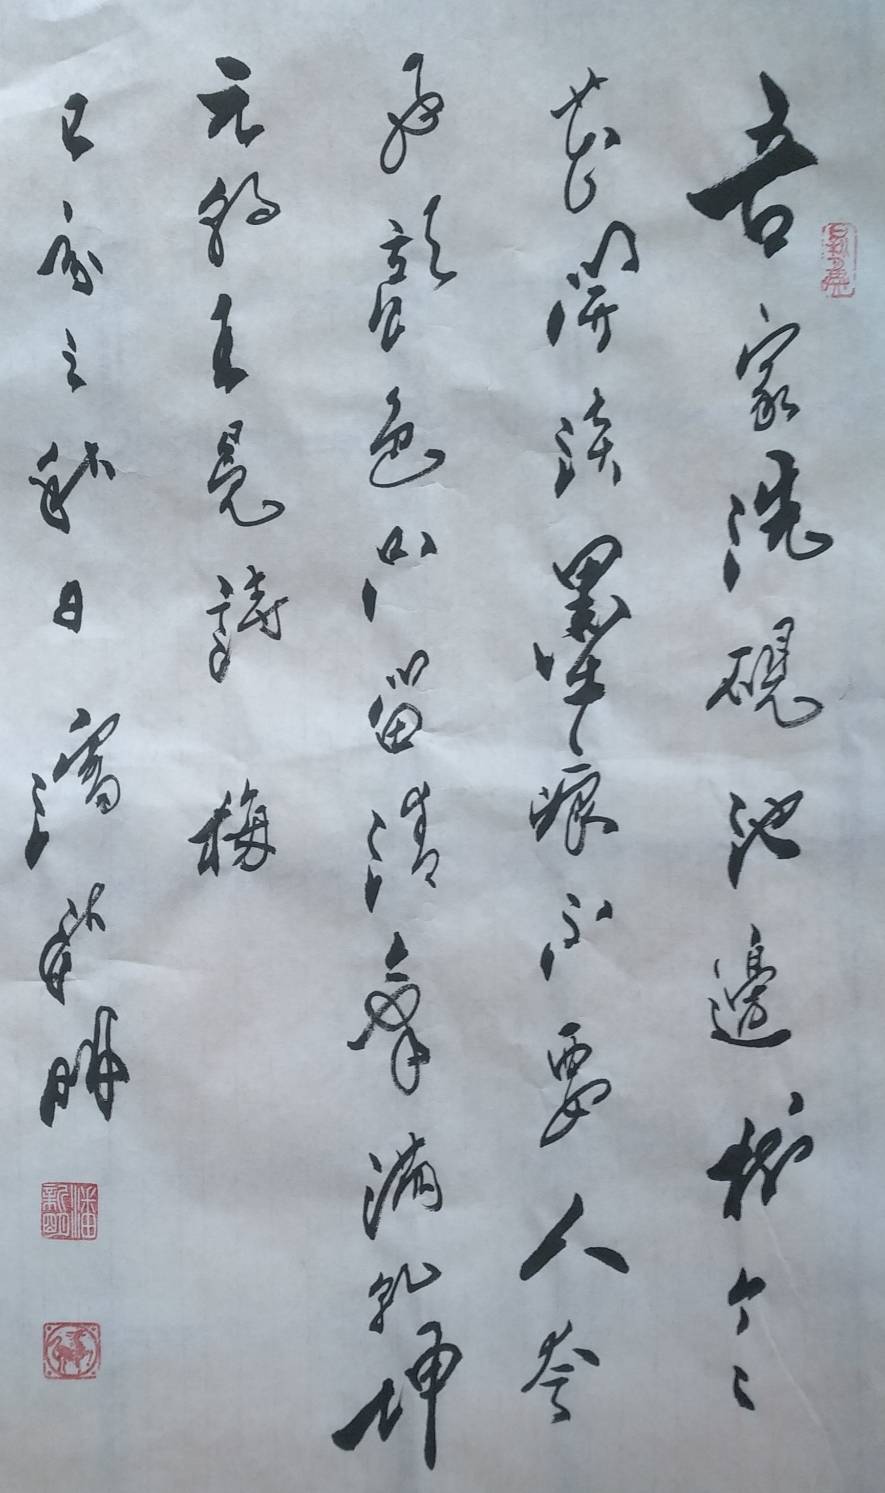 吾家洗硯池邊樹个々
花開淡墨痕不要人夸
好顔色只留清氣滿乾坤
元朝王冕詩 梅
己亥之秋日 潘新明
潘新明